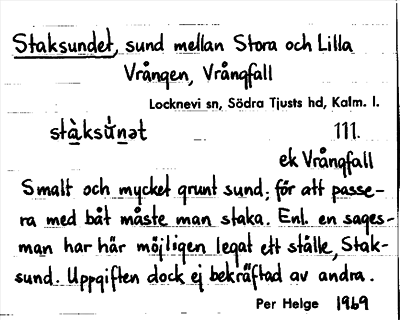 Staksundet, sund mellan Stora och Lilla
Vrången, Vrångfall
Locknevi sn, Södra Tjusts hd, Kalm. l.
stàksu̇nət 111.
ek Vrångfall
Smalt och mycket grunt sund; för att passe-
ra med båt måste man staka. Enl. en sages-
man har här möjligen legat ett ställe, Stak-
sund. Uppgiften dock ej bekräftad av andra.
Per Helge 1969